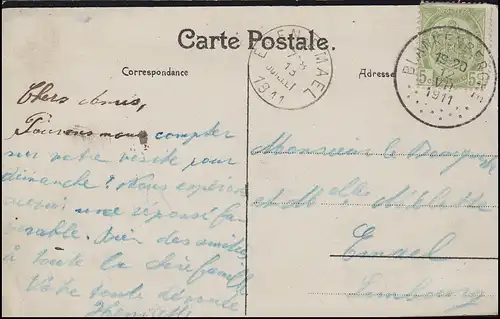 Carte Postale.
Correspondance
Adresse
BLANKENBERGHE
19-20
12
VII
1911
5
5
EMAEL
13
JUILLET
1911
Chers Amis,
Pouvons nous compter
sur votre visite pour
dimanche? Nous espérons
une réponse fa-
vorable. Bien des amitiés
à toute la chère famille
Votre toute dévouée
Monsieur le
et Melle
Limbourg